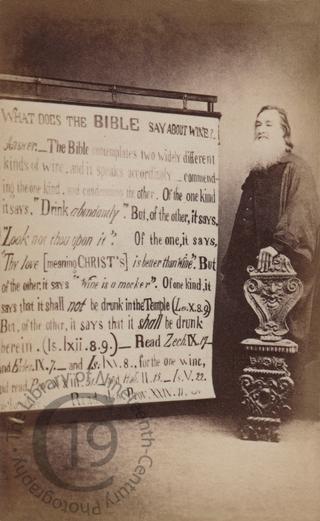 WHAT DOES THE BIBLE SAY ABOUT WINE?.
Answer._ The Bible contemplates two widely different
kinds of wine, and it speaks accordingly _ commend-
ing the one kind, and condemning the other. Of the one kind
it says, "Drink abundantly." But, of the other, it says,
"Look not thou upon it". Of the one, it says,
"Thy love [meaning CHRIST'S] is better than wine." But
of the other, it says "Wine is a mocker". Of one kind, it
says that it shall not be drunk in the Temple (Lev. X.8.9)
But, of the other, it says that it shall be drunk
herein. (Is. lxii. 8.9.) _ Read Zech. IX. 17 _
and IX. 7. _ and Is. lxv. 8., for the one wine,
and read Hab. II. 15. _ Is. V. 22.
Read
Library of Nineteenth-Century Photography
19